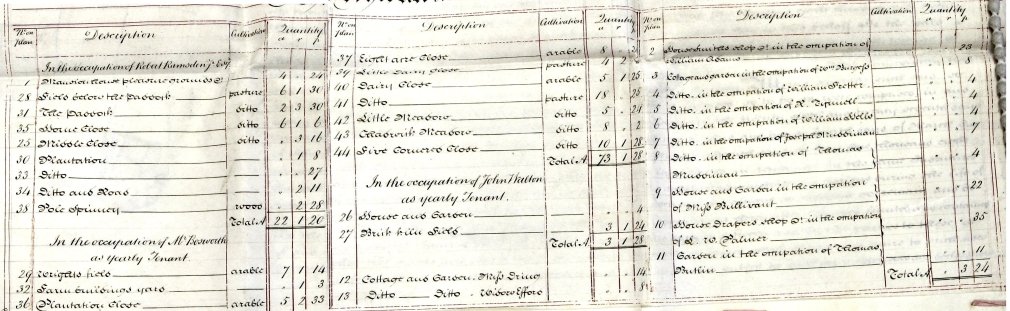 No on plan Description Cultivation Quantity a r p
In the occupation of Robert Ramsden Jr Esqr
1 Mansion house pleasure grounds &c 4 . 24
28 Field below the Paddock pasture 6 1 30
31 The Paddock ditto 2 3 30
35 Home Close ditto 6 1 6
25 Middle Close ditto . 3 16
30 Plantation . 1 8
33 Ditto . . 27
34 Ditto and Road . 2 11
38 Pole Spinney wood . 2 28
Total A 22 1 20
In the occupation of Mr Bosworth
as yearly Tenant
29 Wrights field arable 7 1 14
32 Farm buildings yard . 1 3
36 Plantation Close arable 5 2 33
No on plan Description Cultivation Quantity a r p
37 Eight acre Close arable 8 .
39 Little Dairy Close pasture 4 2
40 Dairy Close arable 5 1 25
41 Ditto pasture 18 . 25
42 Little Meadow ditto 5 . 24
43 Meadow ditto 8 . 2
44 Five Cornered Close ditto 10 1 28
Total A 73 1 28
In the occupation of John Walton
as yearly Tenant
26 House and Garden . . 4
27 Brick kiln Field 3 1 24
Total A 3 1 28
12 Cottage and Garden, Miss Dring . . 14
13 Ditto Ditto . Widow . . 8½
No on plan Description Cultivation Quantity a r p
2 House butchers shop &c in the occupation of
William Adams . . 23
3 Cottage and garden in the occupation of Wm Burgess . . 8
4 Ditto . in the occupation of William . . 4
5 Ditto . in the occupation of R. Tipinell . . 4
6 Ditto . in the occupation of William Wells . . 4
7 Ditto . in the occupation of Joseph Mussiman . . 7
8 Ditto . in the occupation of Thomas
Mussiman . . 4
9 House and Garden in the occupation
of Miss Bullivant . . 22
10 House Drapers shop &c in the occupation
of W. Palmer . . 35
11 Garden in the occupation of Thomas
. . 11
Total A . 3 24